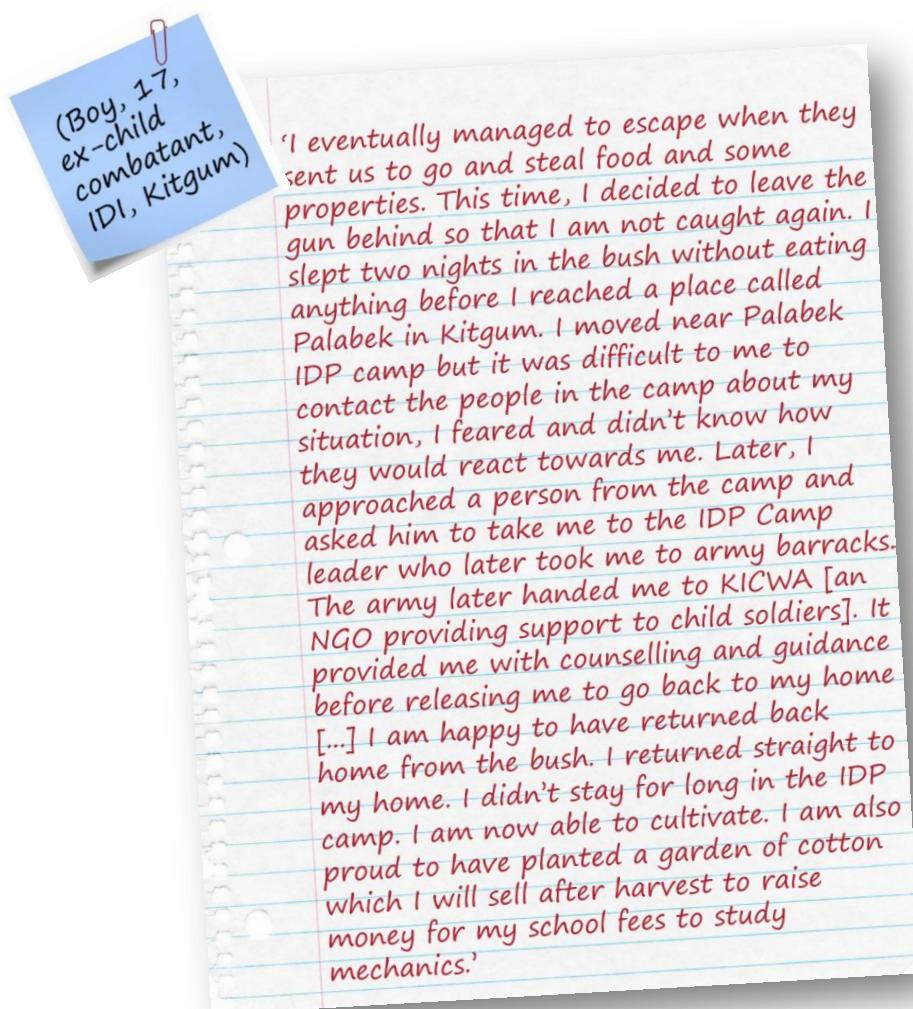 (Boy, 17,
ex-child
combatant,
IDI, Kitgum)
‘I eventually managed to escape when they
sent us to go and steal food and some
properties. This time, I decided to leave the
gun behind so that I am not caught again. I
slept two nights in the bush without eating
anything before I reached a place called
Palabek in Kitgum. I moved near Palabek
IDP camp but it was difficult to me to
contact the people in the camp about my
situation, I feared and didn’t know how
they would react towards me. Later, I
approached a person from the camp and
asked him to take me to the IDP Camp
leader who later took me to army barracks.
The army later handed me to KICWA [an
NGO providing support to child soldiers]. It
provided me with counselling and guidance
before releasing me to go back to my home
[...] I am happy to have returned back
home from the bush. I returned straight to
my home. I didn’t stay for long in the IDP
camp. I am now able to cultivate. I am also
proud to have planted a garden of cotton
which I will sell after harvest to raise
money for my school fees to study
mechanics.’